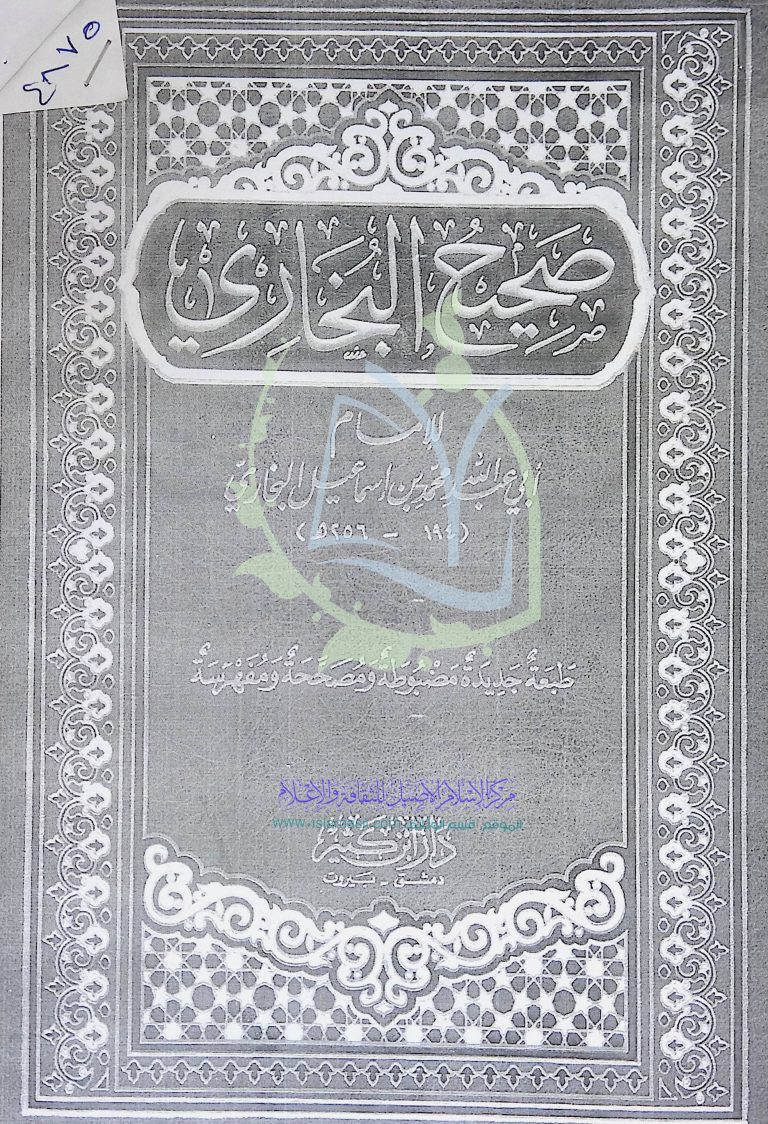 صَحِيحُ البُخَارِي
للإمام
أبي عبد الله محمد بن إسماعيل البخاري
(١٩٤ - ٢٥٦ هـ)
طَبْعَةٌ جَدِيدَةٌ مَضْبُوطَةٌ وَمُصَحَّحَةٌ وَمُفَهْرَسَةٌ
مركز الإسلام الأصيل للثقافة والإعلام
الموقع
دار ابن كثير
دمشق - بيروت